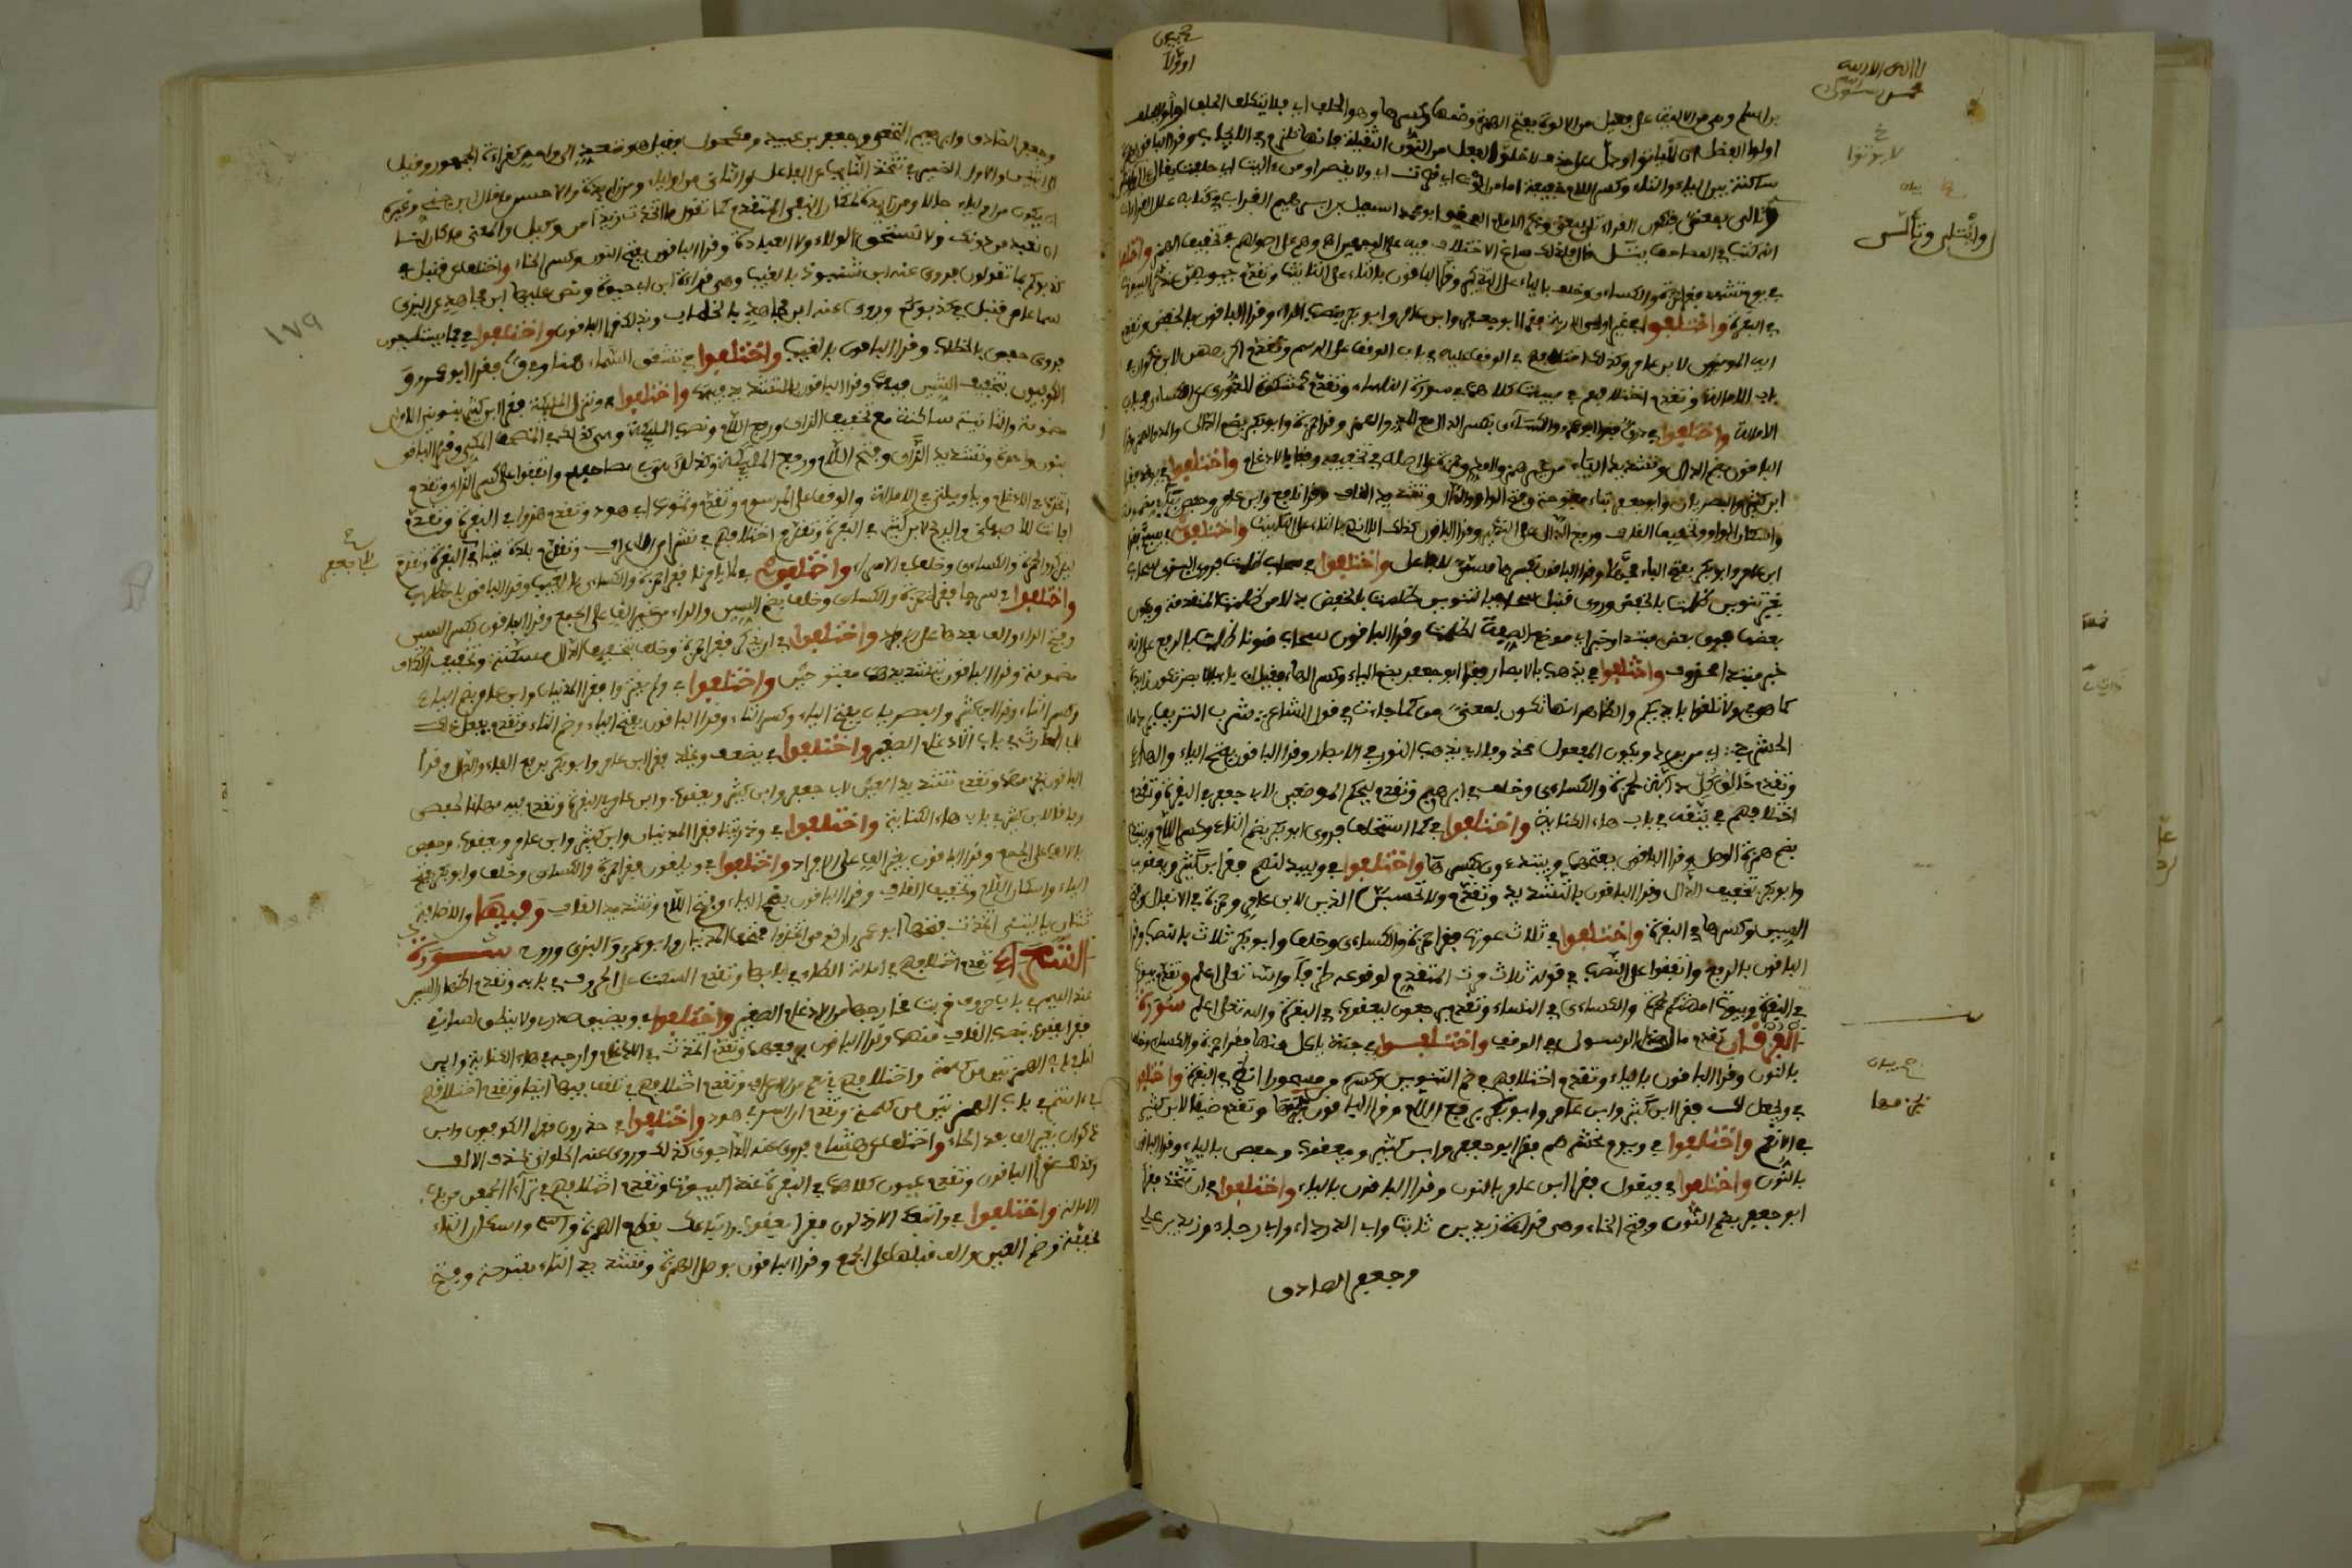 بن اسلم وهي من الالية على وزن فعيلة من الالوة بفتح الهمزة وضمها وكسرها وهو الحلف اي ولا يتكلف الحلف او لا يحلف
اولوا الفضل ان لا يوتوا ودل على حذف لا خلو الفعل من النون الثقيلة فانها تلزم في الايجاب وقرا الباقون بهمزة
ساكنة بين الياء والتاء وكسر اللام خفيفة اما من الوت اي قصرت اي ولا يقصر او من اليت اي حلفت يقال
فتكون القراءتان بمعنى وذكر الامام المحقق ابو محمد اسمعيل بن ابرهيم القراب في كتابه علل القراات
انه كتب في المصاحف يتل قال فلذلك ساغ الاختلاف فيه على الوجهين اه وهم على اصولهم في تخفيف الهمز واختلفوا
في يوم تشهد فقرا حمزة والكساءي وخلف بالياء على التذكير وقرا الباقون بالتاء على التانيث وتقدم جيوبهن عند ذكر البيوت
في البقرة واختلفوا في غير اولي الاربة فقرا ابو جعفر وابن عامر وابو بكر بنصب الراء وقرا الباقون بالخفض وتقدم
ايه المومنون لابن عامر وكذلك اختلافهم في الوقف عليه في باب الوقف على الرسم وتقدم اكراههن لابن ذكوان في
باب الامالة وتقدم اختلافهم في مبينات كلاهما في سورة النساء وتقدم كمشكوة للدوري عن الكساءي في باب
الامالة واختلفوا في دري فقرا ابو عمرو والكساءي بكسر الدال مع المد والهمز وقرا حمزة وابو بكر بضم الدال والمد والهمز وقرا
الباقون بضم الدال وتشديد الياء من غير همز ولا مد وحمزة على اصله في تخفيفه وقفا بالادغام واختلفوا في يوقد فقرا
ابن كثير والبصريان وابو جعفر بتاء مفتوحة وفتح الواو والدال وتشديد القاف وقرا نافع وابن عامر وحفص بياء مضمومة
واسكان الواو وتخفيف القاف ورفع الدال على التذكير وقرا الباقون كذلك الا انه بالتاء على التانيث واختلفوا في يسبح فقرا
ابن عامر وابو بكر بفتح الباء مجهلا وقرا الباقون بكسرها مسمى للفاعل واختلفوا في سحاب ظلمات فروى البزي سحاب
بغير تنوين ظلمات بالخفض وروى قنبل سحاب بالتنوين ظلمات بالخفض بدلا من ظلمات المتقدمة ويكون
بعضها فوق بعض مبتدا وخبرا في موضع الصفة لظلمات وقرا الباقون سحاب منونا ظلمات بالرفع على انه
خبر مبتدا محذوف واختلفوا في يذهب بالابصار فقرا ابو جعفر بضم الياء وكسر الهاء فقيل ان باء بالابصار تكون زايدة
كما هو في ولا تلقوا بايديكم والظاهر انها تكون بمعنى من كما جاءت في قول الشاعر شرب النزيف ببرد ماء
الحشرج اي من برد ويكون المفعول محذوفا اي يذهب النور من الابصار وقرا الباقون بفتح الياء والهاء
وتقدم خالق كل دابة لحمزة والكساءي وخلف في ابرهيم وتقدم ليحكم الموضعين لابي جعفر في البقرة وتقدم
اختلافهم في يتقه في باب هاء الكناية واختلفوا في كما استخلف فروى ابو بكر بضم التاء وكسر اللام ويبتدي
بضم همزة الوصل وقرا الباقون بفتحهما ويبتدءون بكسرها واختلفوا في وليبدلنهم فقرا ابن كثير ويعقوب
وابو بكر بتخفيف الدال وقرا الباقون بالتشديد وتقدم ولا تحسبن الذين لابن عامر وحمزة في الانفال وفتح
السين وكسرها في البقرة واختلفوا في ثلاث عورات فقرا حمزة والكساءي وخلف وابو بكر ثلاث بالنصب وقرا
الباقون بالرفع واتفقوا على النصب في قوله ثلاث مرات المتقدم لوقوعه ظرفا والله تعلى اعلم وتقدم بيوت
في البقرة وبيوت امهاتكم لحمزة والكساءي في النساء وتقدم يرجعون ليعقوب في البقرة والله تعلى اعلم سورة
الفرقان تقدم مال هذا الرسول في الوقف واختلفوا في جنة ياكل منها فقرا حمزة والكساءي وخلف
بالنون وقرا الباقون بالياء وتقدم اختلافهم في ضم التنوين وكسره من مسحورا انظر في البقرة واختلفوا
في ويجعل لك فقرا ابن كثير وابن عامر وابو بكر برفع اللام وقرا الباقون بجزمها وتقدم ضيقا لابن كثير
في الانعام واختلفوا في ويوم نحشرهم فقرا ابو جعفر وابن كثير ويعقوب وحفص بالياء وقرا الباقون
بالنون واختلفوا في فيقول فقرا ابن عامر بالنون وقرا الباقون بالياء واختلفوا في ان نتخذ فقرا
ابو جعفر بضم النون وفتح الخاء وهي قراءة زيد بن ثابت وابي الدرداء وابي رجاء وزيد بن علي
وجعفر الصادق
وجعفر الصادق وابرهيم النخعي وحفص بن عبيد ومكحول فقيل هو متعد الى واحد كقراءة الجمهور وقيل
الى اثنين والاول الضمير في نتخذ النايب عن الفاعل والثاني من اولياء ومن زايدة والاحسن ما قال ابن جني وغيره
ان يكون من اولياء حالا ومن زايدة لمكان النفي المتقدم كما تقول ما اتخذت زيدا من وكيل والمعنى ما كان لنا
ان نعبد من دونك ولا نستحق الولاء ولا العبادة وقرا الباقون بفتح النون وكسر الخاء واختلف عن قنبل في
كذبوكم بما تقولون فروى عنه ابن شنبوذ بالغيب وهي قراءة ابن ابي حيوة ونص عليها ابن مجاهد عن البزي
سماعا من قنبل وروى عنه ابن مجاهد بالخطاب وبذلك قرا الباقون واختلفوا في فما يستطيعون
فروى حفص بالخطاب وقرا الباقون بالغيب واختلفوا في تشقق السماء هنا وفي ق فقرا ابو عمرو
والكوفيون بتخفيف الشين فيهما وقرا الباقون بالتشديد فيهما واختلفوا في ونزل المليكة فقرا ابن كثير بنونين الاولى
مضمومة والثانية ساكنة مع تخفيف الزاي ورفع اللام ونصب المليكة وهي كذلك في المصحف المكي وقرا الباقون
بنون واحدة وتشديد الزاي وفتح اللام ورفع المليكة وكذلك هي في مصاحفهم واتفقوا على كسر الزاي وتقدم
اتخذت في الادغام ويا ويلتى في الامالة والوقف على المرسوم وتقدم وثمودا في هود وتقدم هزوا في البقرة وتقدم
ارايت للاصبهاني والريح لابن كثير في البقرة وتقدم اختلافهم في نشرا في الاعراف وتقدم بلدة ميتا في البقرة وتقدم
ليذكروا لحمزة والكساءي وخلف في الاسراء واختلفوا في لما يامرنا فقرا حمزة والكساءي بالغيب وقرا الباقون بالخطاب
واختلفوا في سرجا فقرا حمزة والكساءي وخلف بضم السين والراء من غير الف على الجمع وقرا الباقون بكسر السين
وفتح الراء والف بعدها على الافراد واختلفوا في ان يذكر فقرا حمزة وخلف بتخفيف الذال مسكنة وتخفيف الكاف
مضمومة وقرا الباقون بتشديدهما مفتوحتين واختلفوا في ولم يقتروا فقرا المدنيان وابن عامر بضم الياء
وكسر التاء وقرا ابن كثير والبصريان بفتح الياء وكسر التاء وقرا الباقون بفتح الياء وضم التاء وتقدم يفعل ذلك
لابي الحارث في باب الادغام الصغير واختلفوا في يضعف ويخلد فقرا ابن عامر وابو بكر برفع الفاء والدال وقرا
الباقون بجزمهما وتقدم تشديد العين لابي جعفر وابن كثير ويعقوب وابن عامر في البقرة وتقدم فيه مهانا لحفص
وفاقا لابن كثير في باب هاء الكناية واختلفوا في وذريتنا فقرا المدنيان وابن كثير وابن عامر ويعقوب وحفص
بالالف على الجمع وقرا الباقون بغير الف على الافراد واختلفوا في ويلقون فقرا حمزة والكساءي وخلف وابو بكر بفتح
الياء واسكان اللام وتخفيف القاف وقرا الباقون بضم الياء وفتح اللام وتشديد القاف وفيها من الاضافة
ثنتان يا ليتني اتخذت فتحها ابو عمرو ان قومي اتخذوا فتحها المدنيان وابو عمرو والبزي وروح سورة
الشعراء تقدم اختلافهم في امالة الطاء في بابها وتقدم السكت على الحروف في بابه وتقدم اظهار السين
عند الميم في باب حروف قربت مخارجها من الادغام الصغير واختلفوا في ويضيق صدري ولا ينطلق لساني
فقرا يعقوب بنصب القاف منهما وقرا الباقون برفعهما وتقدم اتخذت في الادغام وارجه في هاء الكناية واين
لنا في باب الهمزتين من كلمة واختلافهم في نعم في الاعراف وتقدم اختلافهم في تلقف فيها ايضا وتقدم اختلافهم
في ءامنتم في باب الهمزتين من كلمة وتقدم ان اسر في هود واختلفوا في حذرون فقرا الكوفيون وابن
ذكوان بالف بعد الحاء واختلف عن هشام فروى عنه الداجوني كذلك وروى عنه الحلواني بحذف الالف
وكذلك قرا الباقون وتقدم عيون كلاهما في البقرة عند البيوت وتقدم اختلافهم في تراءا الجمعان في باب
الامالة واختلفوا في واتبعك الارذلون فقرا يعقوب واتباعك بقطع الهمزة واسكان التاء
مخففة وضم العين والف قبلها على الجمع وقرا الباقون بوصل الهمزة وتشديد التاء مفتوحة وفتح
١٧٩